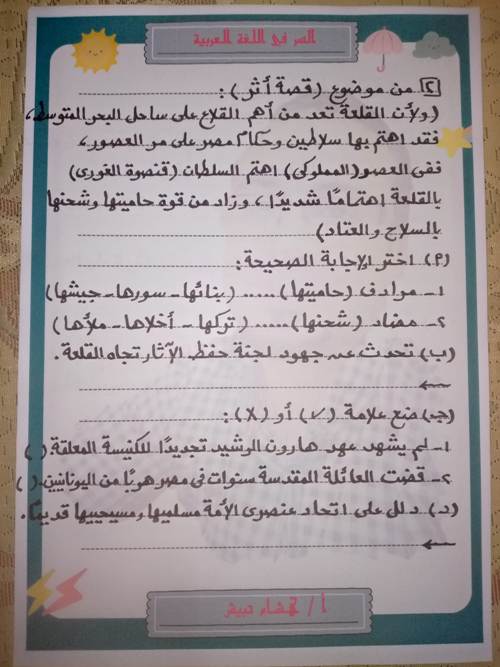 السر في اللغة العربية
[٢] من موضوع (قصة أثر) :
(ولأن القلعة تعد من أهم القلاع على ساحل البحر المتوسط،
فقد اهتم بها سلاطين وحكام مصر على مر العصور،
ففى العصر (المملوكى) اهتم السلطان (قنصوة الغورى)
بالقلعة اهتمامًا شديدًا، وزاد من قوة حاميتها وشحنها
بالسلاح والعتاد)
(P) اختر الإجابة الصحيحة:
١- مرادف (حاميتها) ..... (بنائها - سورها - جيشها)
٢- مضاد (شحنها) ..... (تركها - أخلاها - ملأها)
(ب) تحدث عن جهود لجنة حفظ الآثار تجاه القلعة.
(جـ) ضع علامة (✓) أو (X) :
١- لم يشهد عهد هارون الرشيد تجديدًا للكنيسة المعلقة. ( )
٢- قضت العائلة المقدسة سنوات فى مصر هربًا من اليونانيين. ( )
(د) دلل على اتحاد عنصرى الأمة مسلميها ومسيحييها قديمًا.
أ /